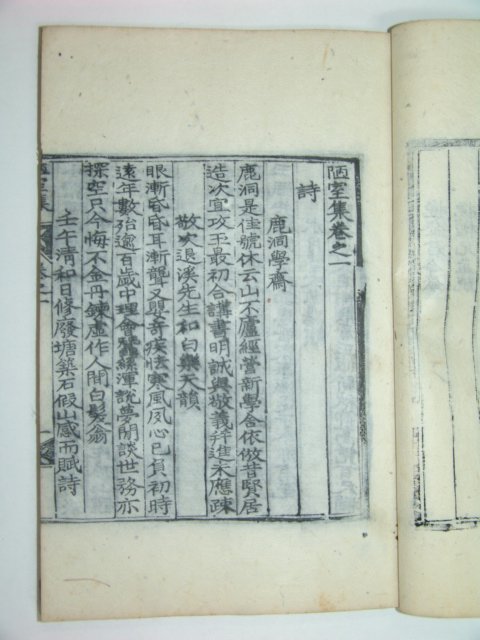 陋室集卷之一
詩
鹿洞學齋
鹿洞是佳號休云山不廬經營新學舍依倣昔賢居
造次宜攻玉最初合講書明誠與敬義幷進未應疎
敬次退溪先生和白樂天韻
眼漸昏昏耳漸聾又嬰奇疾怯寒風夙心已負初時
遠年數殆逾百歲中理會蠶絲渾說夢閒談世務亦
探空只今悔不金丹鍊虛作人間白髮翁
壬午淸和日修廢塘築石假山感而賦詩
陋室集 卷之一